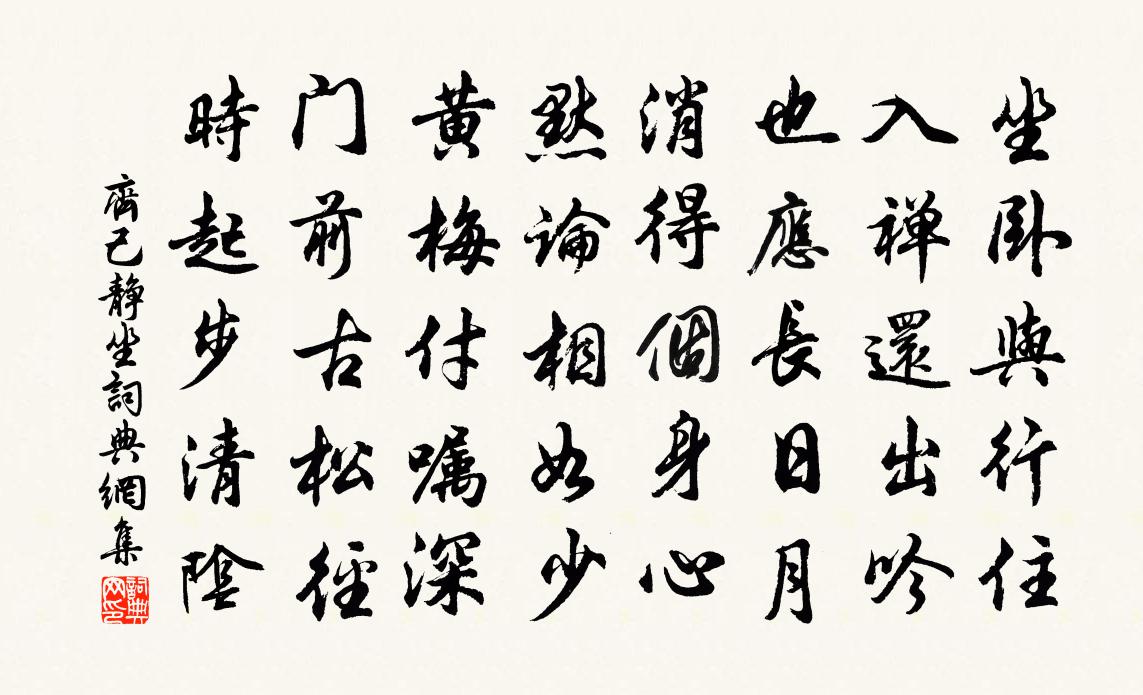 坐卧與行住
入禅還出吟
也應長日月
消得個身心
默論相如少
黄梅付嘱深
门前古松徑
時起步清陰
齊己静坐詞典網集
詞典网印